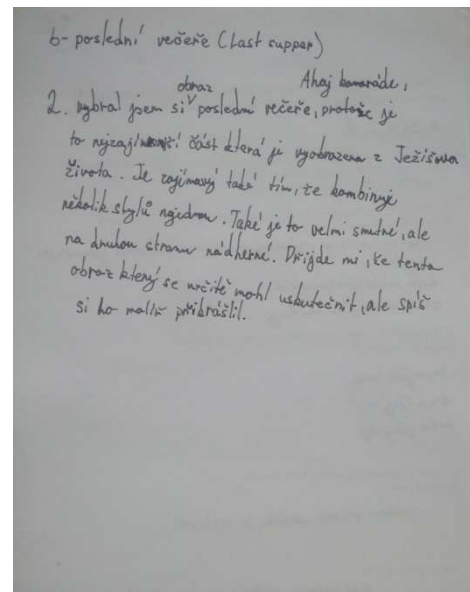 6- poslední večeře (Last supper)
Ahoj kamaráde,
2. vybral jsem si obraz poslední večeře, protože je
to nejzajímavější část která je vyobrazena z Ježíšova
života. Je zajímavý také tím, že kombinuje
několik stylů najednou. Také je to velmi smutné, ale
na druhou stranu nádherné. Přijde mi, že tento
obraz který se určitě mohl uskutečnit, ale spíš
si ho malíř přikrášlil.